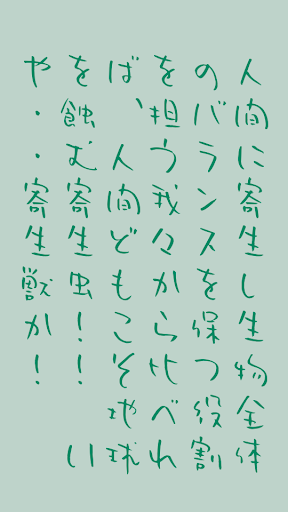 人間に寄生し生物全体
のバランスを保つ役割
を担う我々から比べれ
ば、人間どもこそ地球
を蝕む寄生虫！！い
や・・寄生獣か！